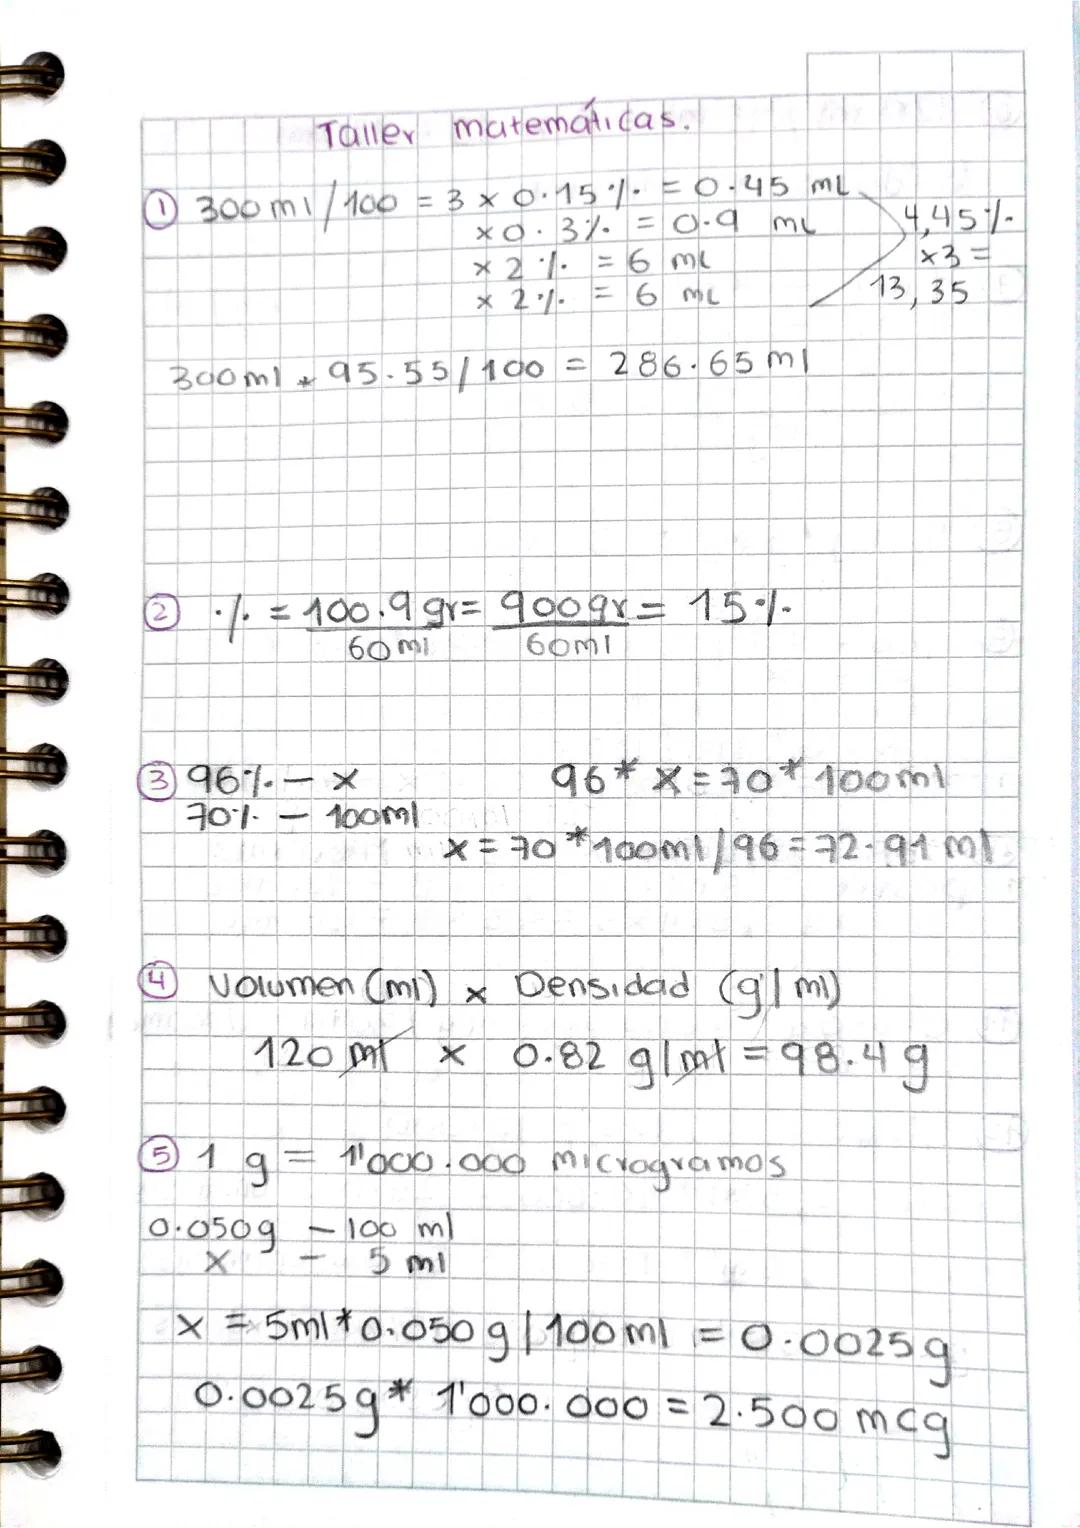 Taller matemáticas.
① 300ml/100 = 3 x 0.15% = 0.45 mL
x 0.3% = 0.9 mL
x 2% = 6 mL
x 2% = 6 mL
4,45%
x3 =
13,35
300ml * 95.55/100 = 286.65 ml
② % = 100.9gr = 900gr = 15%
60ml 60ml
③ 96% - x 96 * x = 70 * 100ml
70% - 100ml
x = 70 * 100ml/96 = 72.91 ml
④ Volumen (ml) x Densidad (g/ml)
120 ml x 0.82 g/ml = 98.4 g
⑤ 1 g = 1'000.000 microgramos
0.050g - 100 ml
x - 5 ml
x = 5ml * 0.050 g/100ml = 0.0025g
0.0025g * 1'000.000 = 2.500 mcg